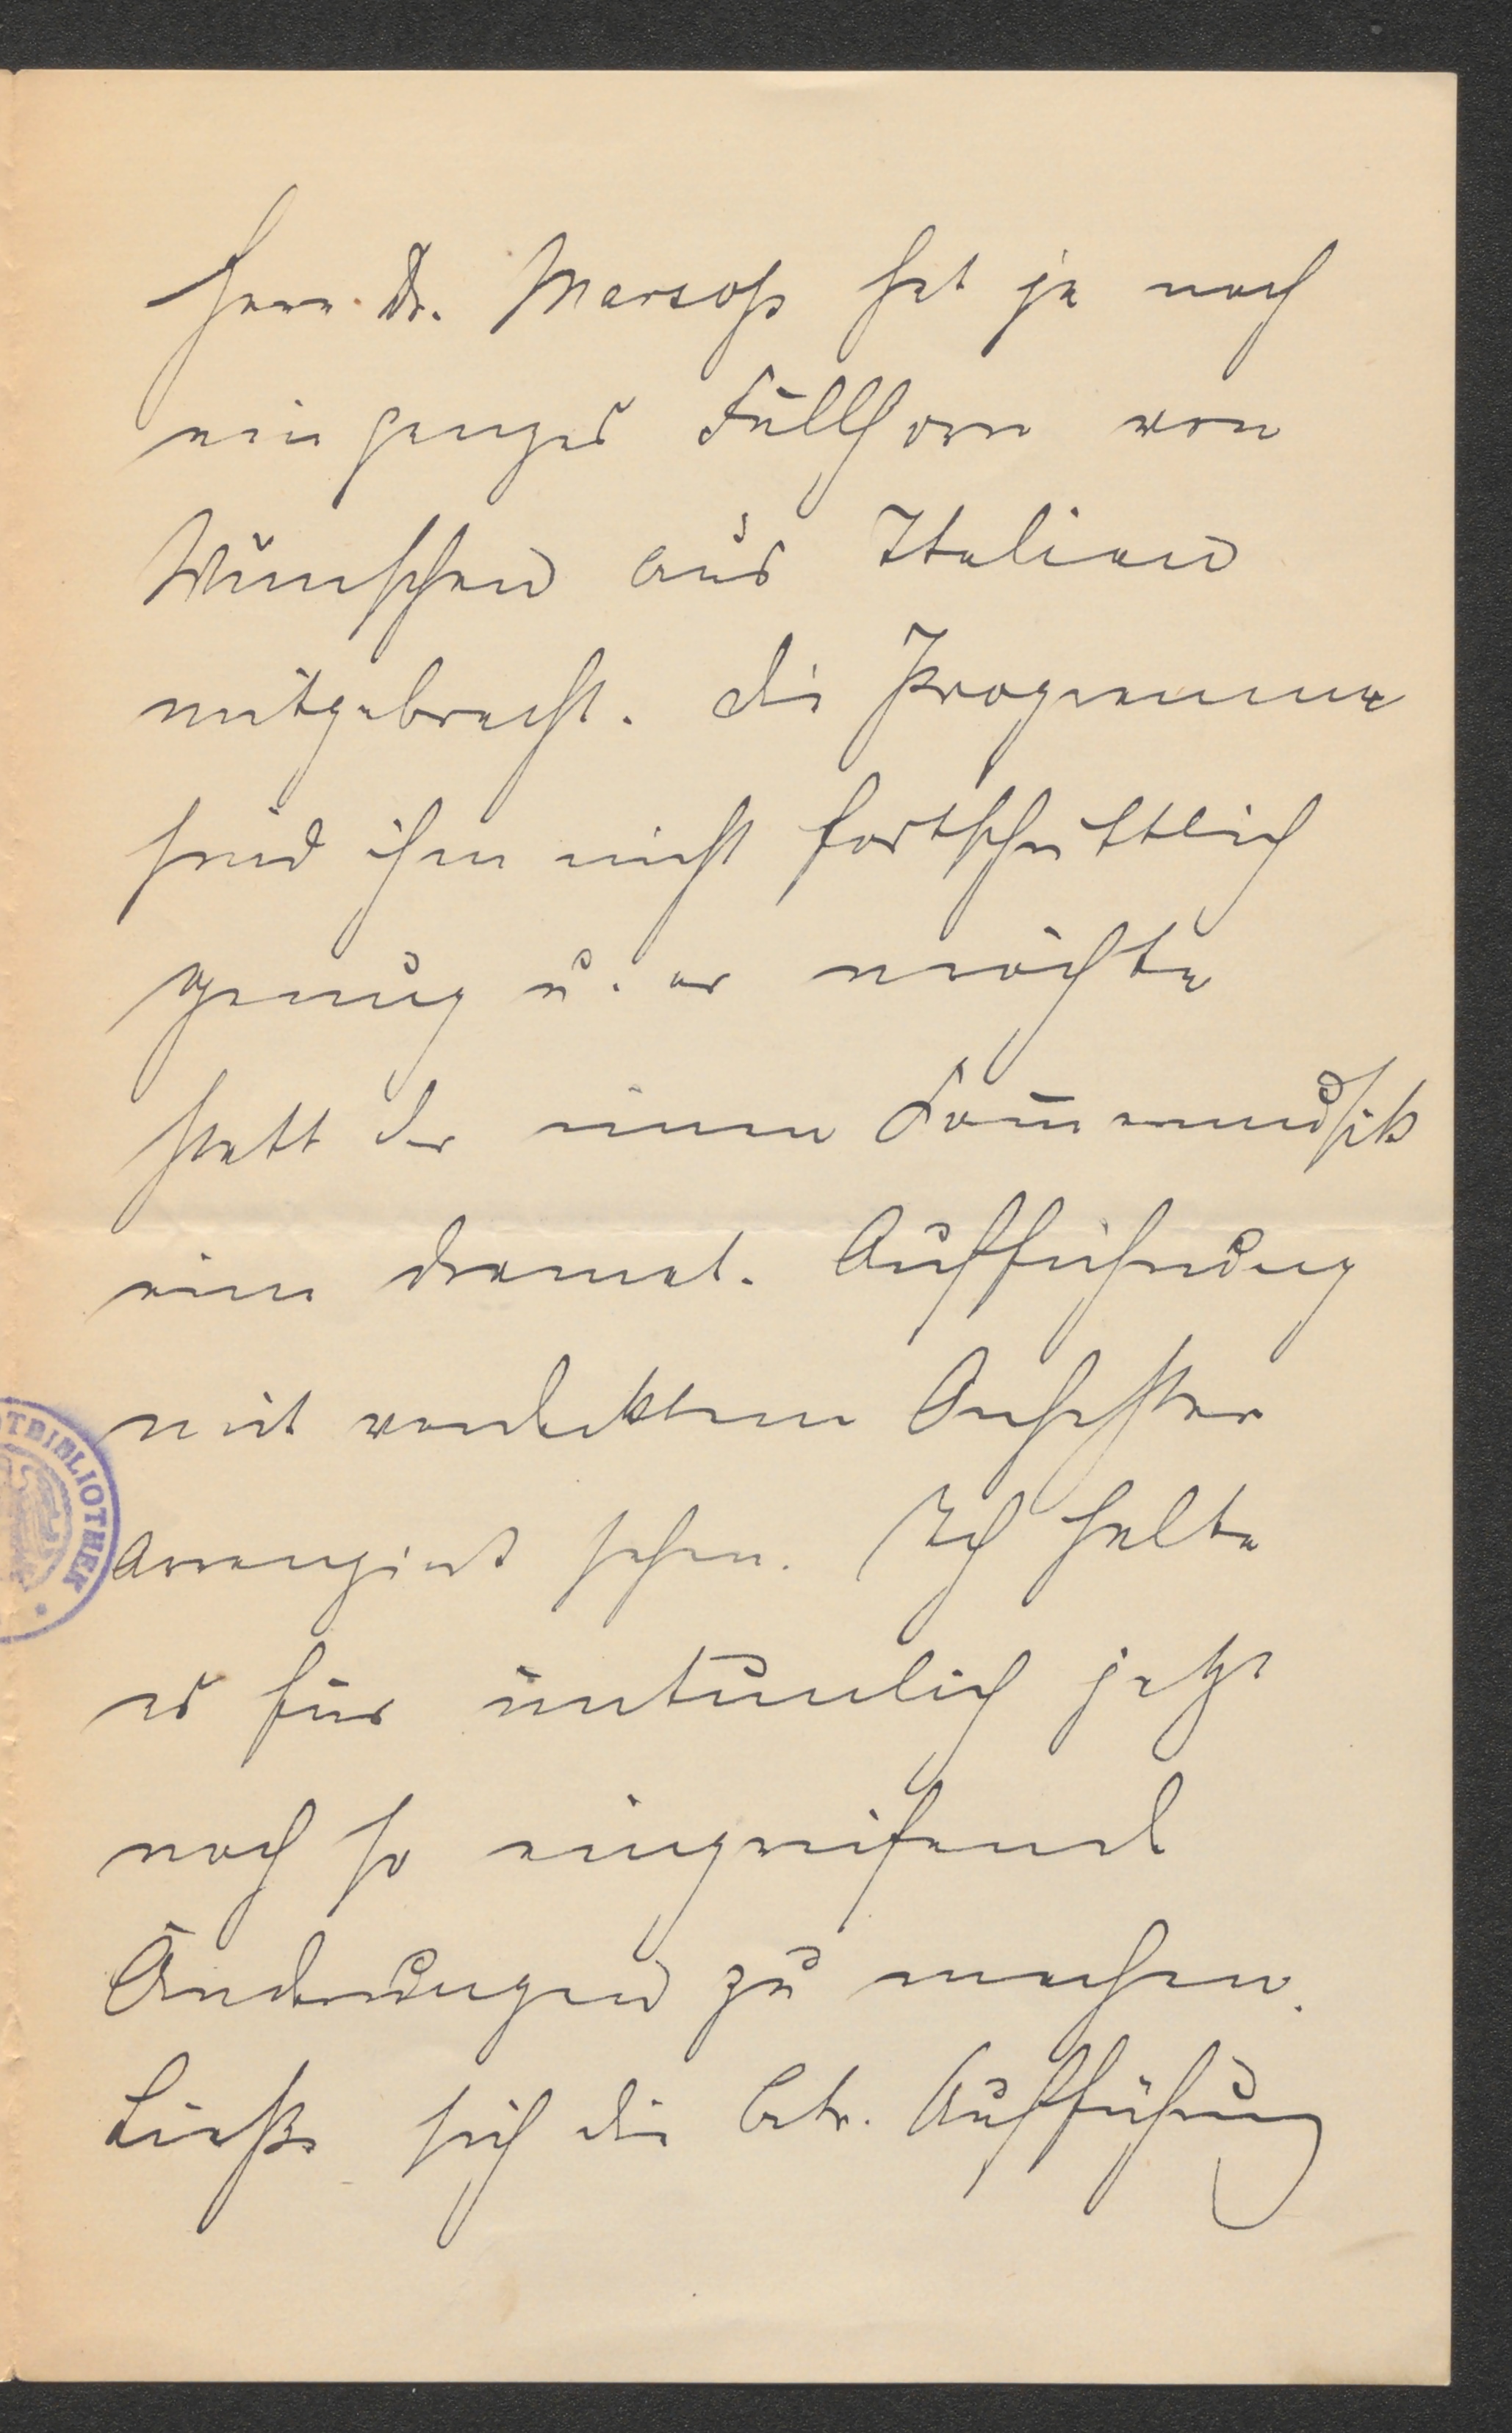 Herr Dr. Marsop hat ja noch
ein ganzes Füllhorn von
Wünschen aus Italien
mitgebracht. Die Programme
sind ihm nicht fortschrittlich
genug u. er möchte
statt der einen Kam̅ermusik
eine dramat. Aufführung
mit verdecktem Orchester
arrangiert sehen. Ich halte
es für untunlich jetzt
noch so eingreifend
Änderungen zu machen.
Ließe sich die betr. Aufführung
TBIBLIOTHEK